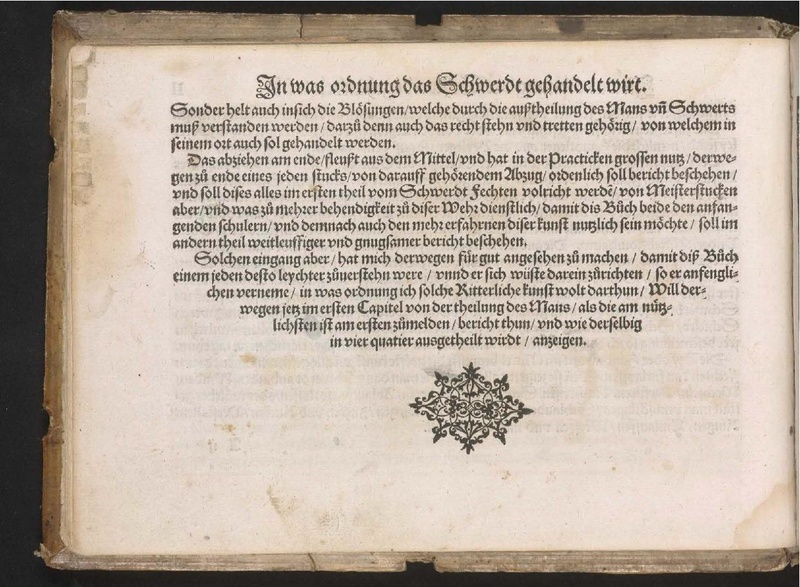 In was ordnung das Schwerdt gehandelt wirt.
Sonder helt auch insich die Blösungen/welche durch die außtheilung des Mans vñ Schwerts
muß verstanden werden/darzů denn auch das recht stehn vnd tretten gehörig/von welchem in
seinem ort auch sol gehandelt werden.
Das abziehen am ende/fleußt aus dem Mittel/vnd hat in der Practicken grossen nutz/derwe-
gen zů ende eines jeden stucks/von darauff gehörendem Abzug/ordenlich soll bericht beschehen/
vnd soll dises alles im ersten theil vom Schwerdt Fechten volricht werdē/von Meisterstucken
aber/vnd was zů mehrer behendigkeit zů diser Wehr dienstlich/damit dis Bůch beide den anfan-
genden schulern/vnd demnach auch den mehr erfahrnen diser kunst nutzlich sein möchte/soll im
andern theil weitleuffiger vnd gnugsamer bericht beschehen.
Solchen eingang aber/hat mich derwegen für gut angesehen zů machen/damit diß Bůch
einem jeden desto leychter zůuerstehn were/vnnd er sich wüste darein zůrichten/so er anfengli-
chen verneme/in was ordnung ich solche Ritterliche kunst wolt darthun/Will der-
wegen jetz im ersten Capitel von der theilung des Mans/als die am nütz-
lichsten ist am ersten zůmelden/bericht thun/vnd wie derselbig
in vier quatier ausgetheilt wirdt/anzeigen.